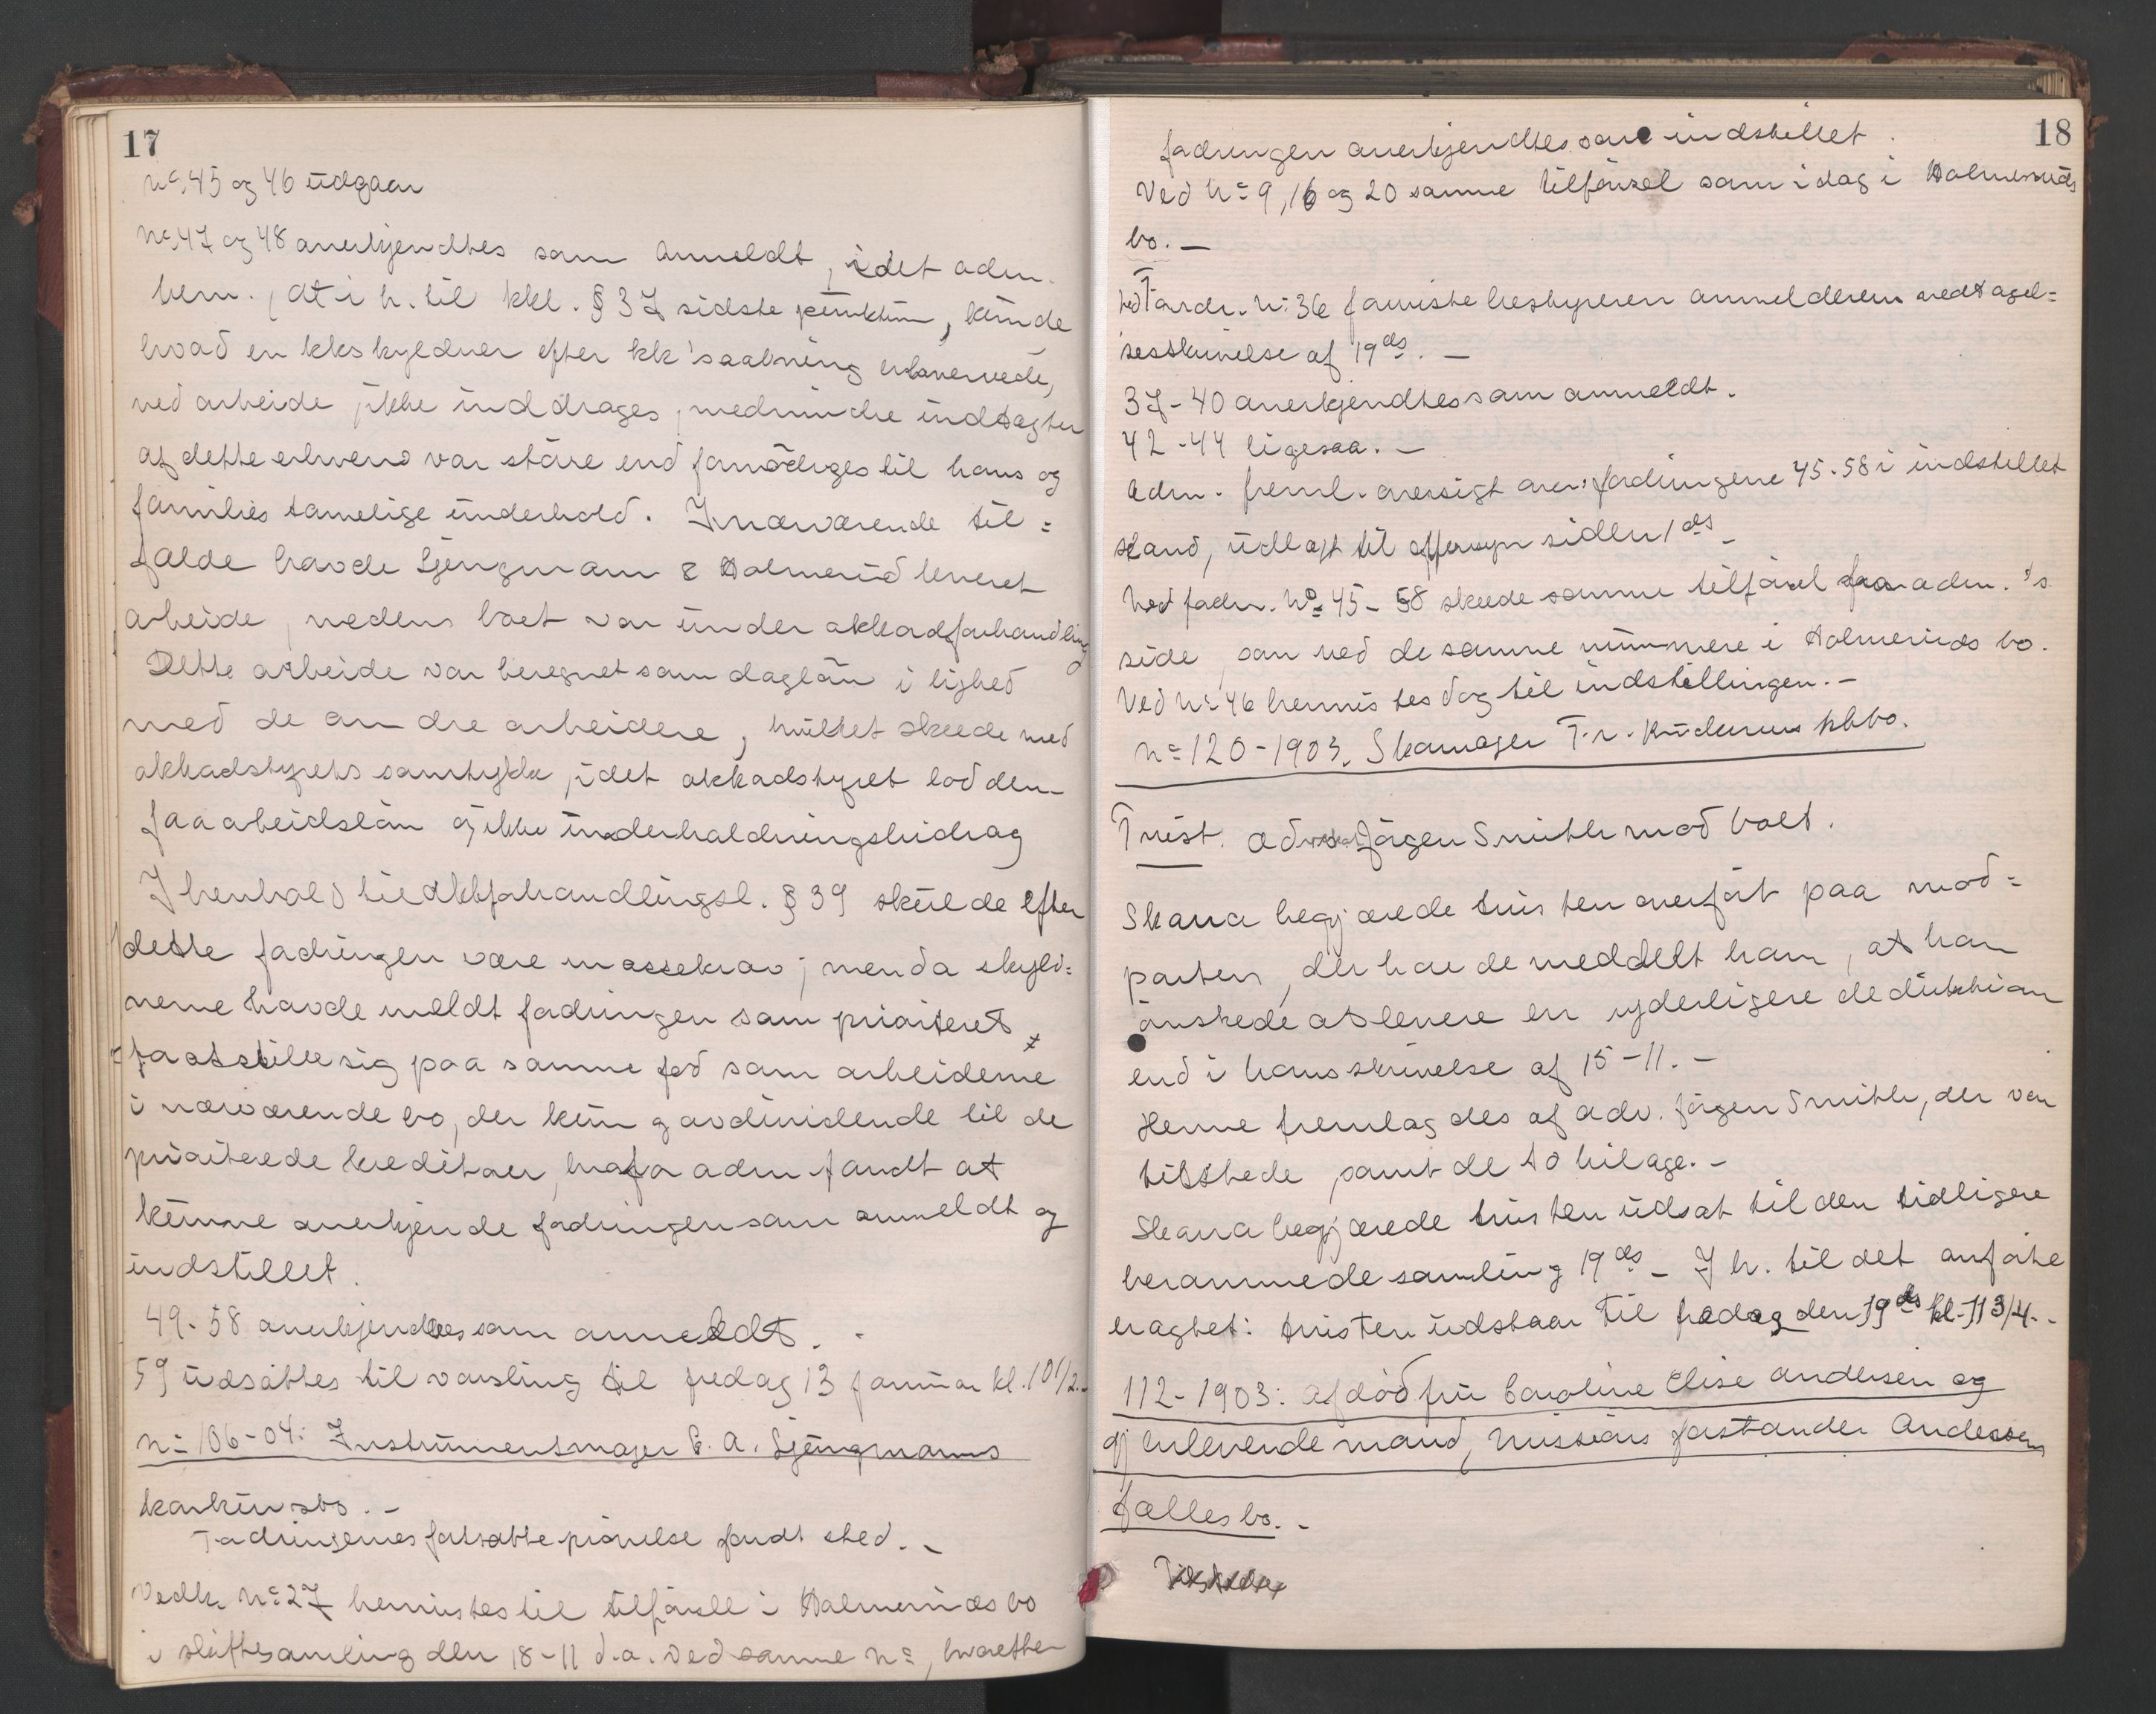 17
No. 45 og 46 udgaar
No. 47 og 48 anerkjendtes som anmeldt, idet adm.
bem., at i h. til kkl. § 37 sidste punktum, kunde
hvad en kkskyldner efter kk'saabning erhvervede,
ved arbeide, ikke inddrages, medmindre indtægter
af dette erhverv var större end fornödiges til hans og
families tarvelige underhold. I nærværende til=
fælde havde Ljungmann & Holmerud leveret
arbeide, medens boet var under akkordforhandling
Dette arbeide var beregnet som daglön i lighed
med de andre arbeidere, hvilket skeede med
akkordstyrets samtykke, idet akkordstyret lod dem
faa arbeidslön og ikke underholdningsbidrag
I henhold til akkforhandlingsl. § 39 skulde efter
dette fordringen være massekrav; men da skyld=
nerne havde meldt fordringen som prioriteret
for at stille sig paa samme fod som arbeiderne
i nærværende bo, der kun gav dividende til de
prioriterede kreditorer, hvorfor adm fandt at
kunne anerkjende fordringen som anmeldt og
indstillet.
49-58 anerkjendtes som anmeldt.
59 udsattes til varsling til fredag 13 januar kl. 10 1/2.-
No 106-04: Instrumentmager C. A. Ljungmanns
konkursbo. -
Fordringernes fortsatte prövelse fandt sted. -
Vedk. No 27 henvistes til tilförsel i Holmeruds bo
i skiftesamling den 18-11 d.a. ved samme No, hvorefter
18
fordringen anerkjendtes som indstillet.
Ved No 9, 16 og 20 samme tilförsel som idag i Holmeruds
bo. -
Ved fordr. No 36 foreviste bestyreren anmelderens vedtagel=
sesskrivelse af 19ds. -
37-40 anerkjendtes som anmeldt.
42-44 ligesaa. -
Adm. freml. oversigt over fordringene 45-58 i indstillet
stand, udlagt til eftersyn siden 1ds -
Ved fordr. No 45-58 skeede samme tilförsel fra adm.'s
side, som ved de samme nummere i Holmeruds bo.
Ved No 46 henvistes dog til indstillingen. -
No 120-1903. Skomager Fr. Knudsens kkbo.
Tvist. Advokat Jörgen Smith mod boet.
Skara begjærede tvisten overfört paa mod=
parten, der havde meddelt ham, at han
önskede at levere en yderligere deduktion
end i hans skrivelse af 15-11. -
Denne fremlagdes af adv. Jörgen Smith, der var
tilstede, samt de to bilage. -
Skara begjærede tvisten udsat til den tidligere
berammede samling 19ds - I h. til det anförte
eragtet: tvisten udstaar til fredag den 19ds kl. 11 3/4. -
112-1903: Afdöd fru Caroline Elise Andersen og
gjenlevende mand, missions forstander Andersens
fælles bo. -